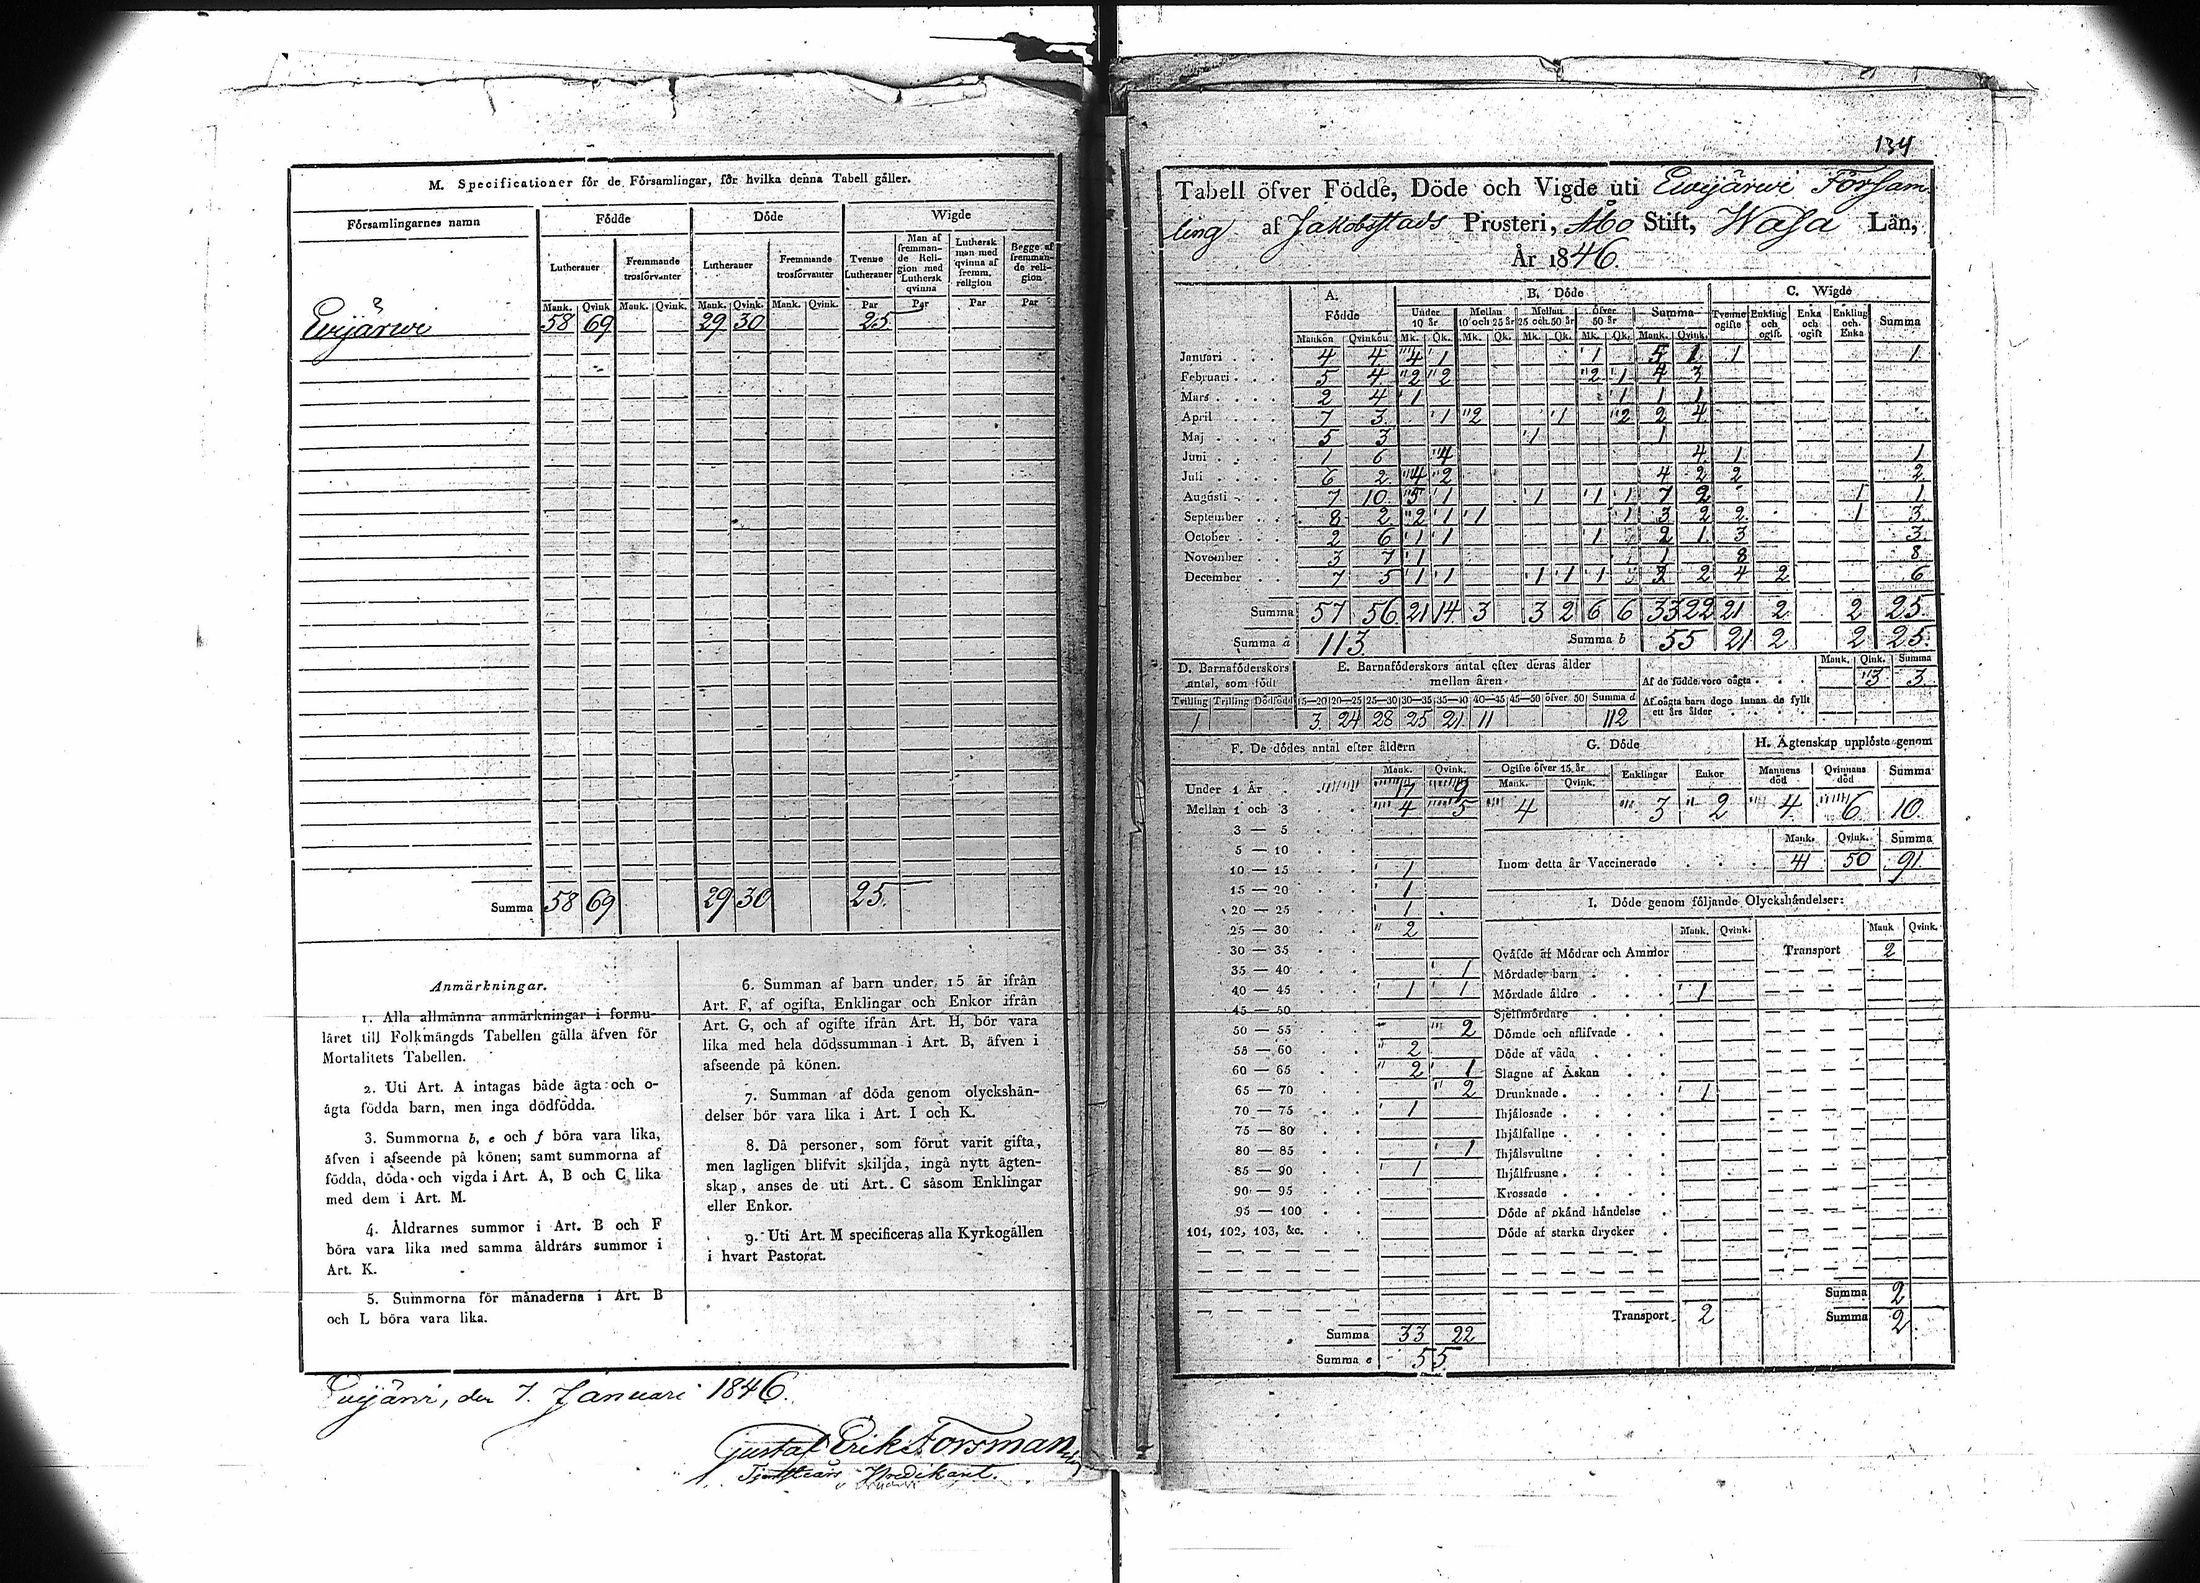 M. Specificationer för de Församlingar, för hvilka denna Tabell gäller.
Församlingarnes namn | Födde | Döde | Wigde
Lutherauer | Fremmande trosförvanter | Lutherauer | Fremmande trosförvanter | Tvenne Lutherauer | Man af fremmande Religion med Luthersk qvinna | Luthersk man med qvinna af fremm. religion | Begge af fremmande religion
Mank. | Qvink. | Mank. | Qvink. | Mank. | Qvink. | Mank. | Qvink. | Par | Par | Par | Par
Ewijärwi 58 69 29 30 25
Summa 58 69 29 30 25
Anmärkningar.
1. Alla allmänna anmärkningar i formu-
läret till Folkmängds Tabellen gälla äfven för
Mortalitets Tabellen.
2. Uti Art. A intagas både ägta och o-
ägta födda barn, men inga dödfödda.
3. Summorna b, e och f böra vara lika,
äfven i afseende på könen; samt summorna af
födda, döda och vigda i Art. A, B och C lika
med dem i Art. M.
4. Åldrarnes summor i Art. B och F
böra vara lika med samma åldrars summor i
Art. K.
5. Summorna för månaderna i Art. B
och L böra vara lika.
6. Summan af barn under 15 år ifrån
Art. F, af ogifta, Enklingar och Enkor ifrån
Art. G, och af ogifte ifrån Art. H, bör vara
lika med hela dödssumman i Art. B, äfven i
afseende på könen.
7. Summan af döda genom olyckshän-
delser bör vara lika i Art. I och K.
8. Då personer, som förut varit gifta,
men lagligen blifvit skiljda, ingå nytt ägten-
skap, anses de uti Art. C såsom Enklingar
eller Enkor.
9. Uti Art. M specificeras alla Kyrkogällen
i hvart Pastorat.
Ewijärwi, den 7. Januari 1846.
Gustaf Erik Forsman
Predikant.
134
Tabell öfver Födde, Döde och Vigde uti Ewijärwi Försam-
ling af Jakobstads Prosteri, Åbo Stift, Wasa Län,
År 1846.
A. Födde | B. Döde | C. Wigde
Under 10 år | Mellan 10 och 25 år | Mellan 25 och 50 år | Öfver 50 år | Summa | Tvenne ogifte | Enkling och ogift | Enka och ogift | Enkling och Enka | Summa
Mankön | Qvinkön | Mk. | Qk. | Mk. | Qk. | Mk. | Qk. | Mk. | Qk. | Mank. | Qvink.
Januari 4 4 4 1 1 5 1 1 1
Februari 5 4 2 2 2 1 4 3
Mars 2 4 1 1 1 1
April 7 3 1 2 1 2 2 4
Maj 5 3 1 1
Juni 1 6 4 4 1 1
Juli 6 2 4 2 4 2 2 2
Augusti 7 10 5 1 1 1 1 7 2 1 1
September 8 2 2 1 1 1 3 2 2 1 3
October 2 6 1 1 1 2 1 3 3
November 3 7 1 1 8 8
December 7 5 1 1 1 1 1 3 2 4 2 6
Summa 57 56 21 14 3 3 2 6 6 33 22 21 2 2 25
Summa a 113 Summa b 55 21 2 2 25
D. Barnaföderskors antal, som födt
Tvilling | Trilling | Dödfödd
1
E. Barnaföderskors antal efter deras ålder mellan åren
15—20 | 20—25 | 25—30 | 30—35 | 35—40 | 40—45 | 45—50 | öfver 50 | Summa d
3 24 28 25 21 11 112
Mank. | Qink. | Summa
Af de födde voro oägta 3 3
Af oägta barn dogo innan de fyllt ett års ålder
F. De dödes antal efter åldern
Mank. | Qvink.
Under 1 År 17 9
Mellan 1 och 3 4 5
3 — 5
5 — 10
10 — 15 1
15 — 20 1
20 — 25 1
25 — 30 2
30 — 35
35 — 40 1
40 — 45 1 1
45 — 50
50 — 55 2
55 — 60 2
60 — 65 2 1
65 — 70 2
70 — 75 1
75 — 80
80 — 85 1
85 — 90 1
90 — 95
95 — 100
101, 102, 103, &c.
Summa 33 22
Summa e 55
G. Döde
Ogifte öfver 15 år | Enklingar | Enkor
Mank. | Qvink.
4 3 2
H. Ägtenskap upplöste genom
Mannens död | Qvinnans död | Summa
4 6 10
Mank. | Qvink. | Summa
Inom detta år Vaccinerade 41 50 91
I. Döde genom följande Olyckshändelser:
Mank. | Qvink. | Mank | Qvink.
Qväfde af Mödrar och Ammor
Mördade barn
Mördade äldre 1
Sjelfmördare
Dömde och aflifvade
Döde af våda
Slagne af Åskan
Drunknade 1
Ihjälosade
Ihjälfallne
Ihjälsvultne
Ihjälfrusne
Krossade
Döde af okänd händelse
Döde af starka drycker
Transport 2
Transport 2
Summa 2
Summa 2